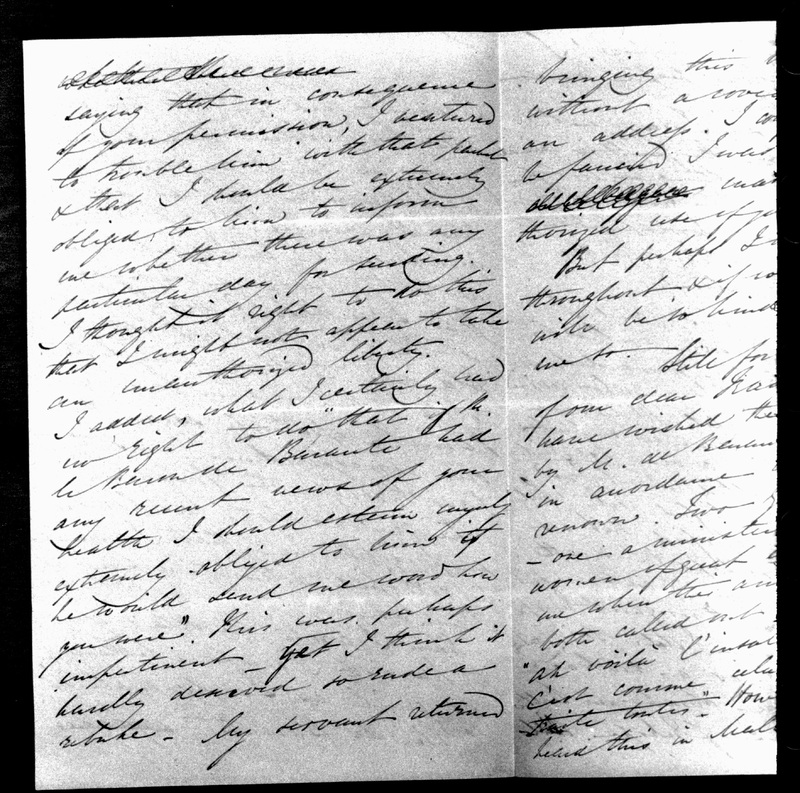 saying that in consequence
of your permission, I ventured
to trouble him with that packet
& that I should be extremely
obliged to him to inform
me whether there was any
particular day for sending.
I thought it right to do this
that I might not appear to take
an unauthorized liberty.
I added, what I certainly had
no right to do "that if Mr.
le Baron de Barante had
any recent news of your
health I should esteem myself
extremely obliged to him if
he would send me word how
you were". This was perhaps
impertinent – yet I think it
hardly deserved so rude a
rebuke – My servant returned
bringing this
without a cover
an address. I
be fancied I was
thorized use of
But perhaps I
throughout & if so
will be so kind
me so – Still for
from dear
have wished
by M. de
in accordance
renown. Two
– one a minister
women of great
me when the
both called out
"ah voilà l'
c'est comme
toutes" – How
heard this in